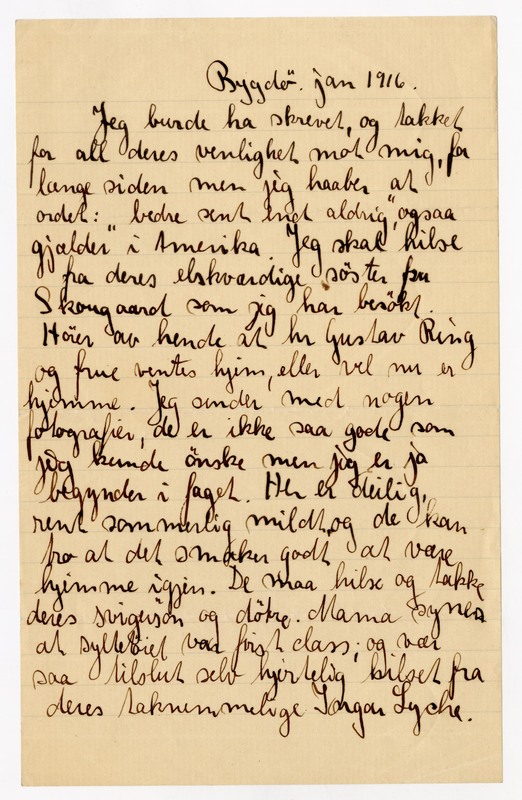 Bygdö. jan 1916.
Jeg burde ha skrevet, og takket
for all deres venlighet mot mig, for
længe siden men jeg haaber at
ordet: „bedre sent end aldrig", ogsaa
gjælder i Amerika. Jeg skal hilse
fra deres elskværdige söster fru
Skougaard som jeg har besökt.
Hörer av hende at hr Gustav Ring
og frue ventes hjem, eller vel nu er
hjemme. Jeg sender med nogen
fotografier, de er ikke saa gode som
jeg kunde önske men jeg er ja
begynder i faget. Her er deilig,
rent sommerlig mildt, og de kan
tro at det smaker godt at være
hjemme igjen. De maa hilse og takke
deres svigersön og döttre. Mama synes
at syltetöiet var first class; og vær
saa tilslut selv hjertelig hilset fra
deres taknemmelige Lyche.